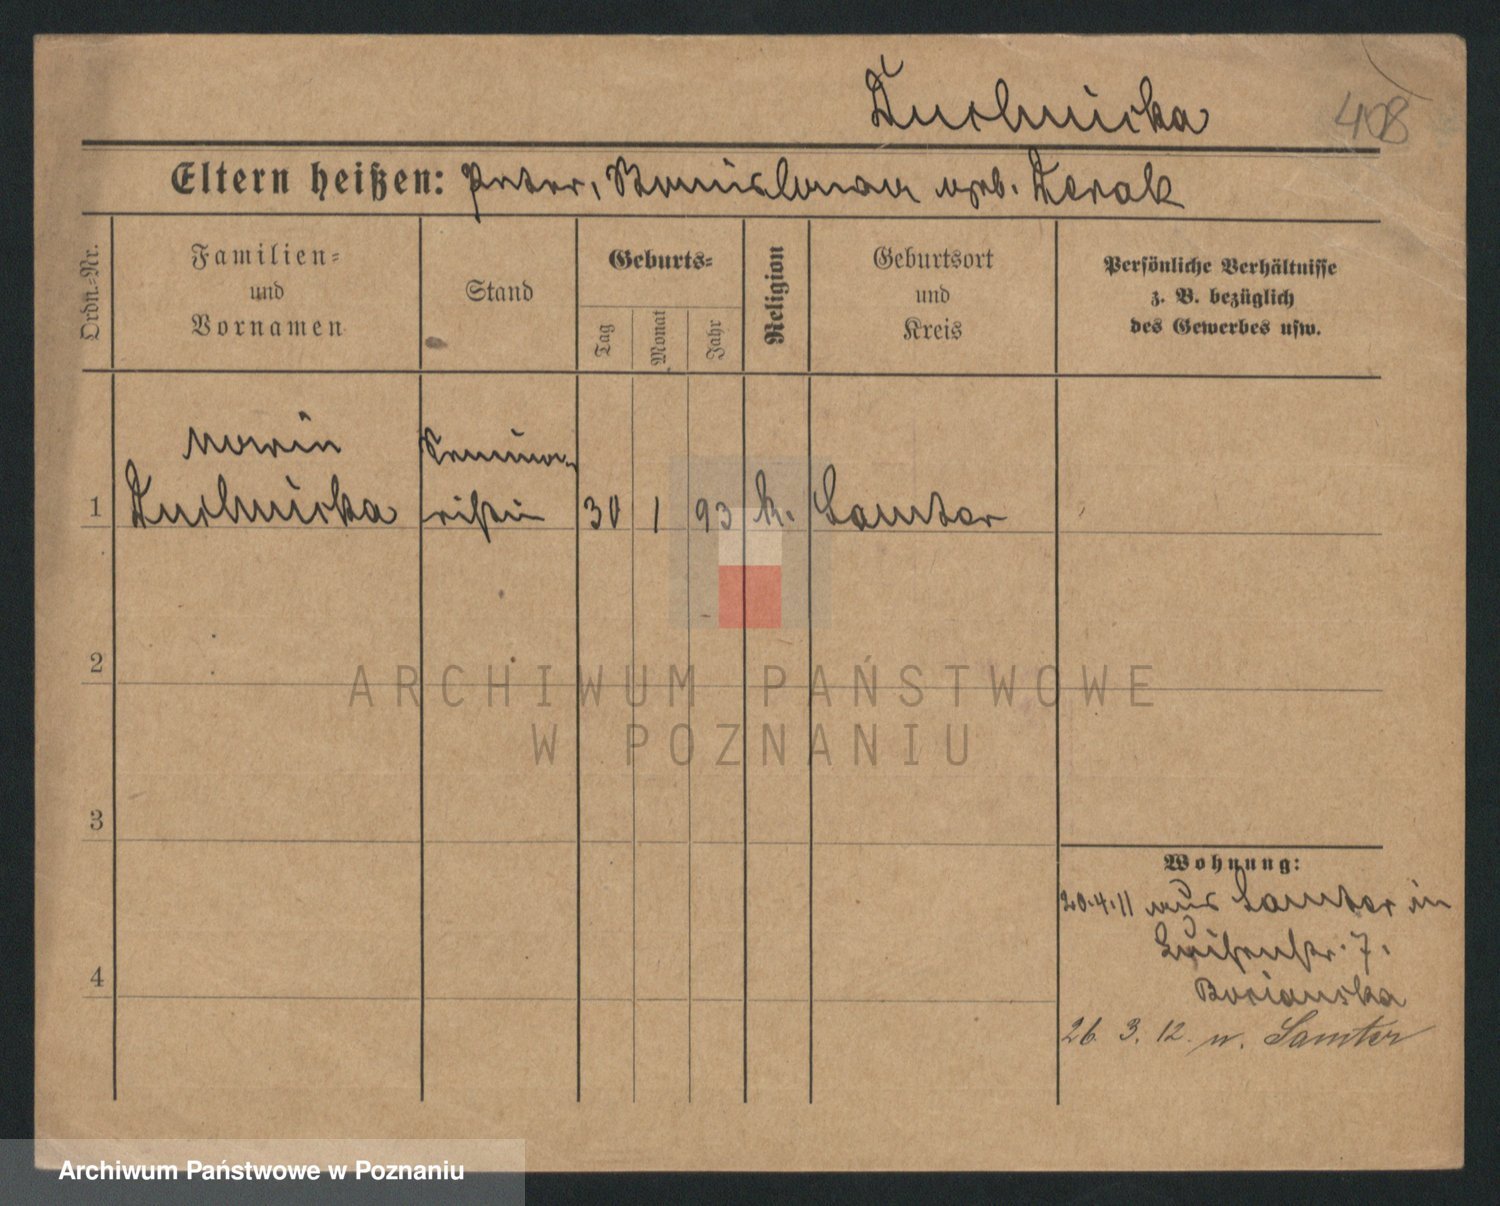 408
Eltern heißen: Peter, Stanislawa geb.
Ordn.-Nr.
Familien-
und
Vornamen
Stand
Geburts-
Tag
Monat
Jahr
Religion
Geburtsort
und
Kreis
Persönliche Verhältnisse
z. B. bezüglich
des Gewerbes usw.
Semina-
1 ristin 30 1 93 k. Samter
2
3
4
Wohnung:
20.4.11 aus Samter in
Luisenstr. 7.
26. 3. 12. n. Samter
ARCHIWUM PAŃSTWOWE
W POZNANIU
Archiwum Państwowe w Poznaniu